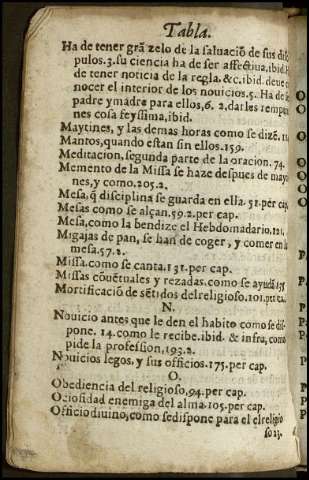 Tabla.
Ha de tener grã zelo de la saluaciõ de sus disci
pulos. 3. su ciencia ha de ser affectiua. ibid. H
de tener noticia de la regla. &c. ibid. deue co
nocer el interior de los nouicios. 5. Ha de se
padre y madre para ellos, 6. 2, darles
nes cosa feyssima, ibid.
Maytines, y las demas horas como se dizẽ. 11
Mantos, quando estan sin ellos. 159.
Meditacion, segunda parte de la oracion. 74.
Memento de la Missa se haze despues de mayti
nes, y como. 205. 2.
Mesa, q̃ disciplina se guarda en ella. 51. per cap.
Mesas como se alçan. 59. 2. per cap.
Mesa, como la bendize el Hebdomadario. 121.
Migajas de pan, se han de coger, y comer en la
mesa. 57. 2.
Missa. como se canta. 131. per cap.
Missas cõuẽtuales y rezadas. como se ayudã
Mortificaciõ de sẽtidos del religioso. 101. per ca.
N.
Nouicio antes que le den el habito como se dis-
pone. 14. como le recibe. ibid. & infra, como
pide la profession, 193. 2.
Nouicios legos, y sus officios. 175. per cap.
O.
Obediencia del religioso, 94. per cap.
Ociosidad enemiga del alma. 105. per cap.
Officio diuino, como se dispone para el el religio
so 23.